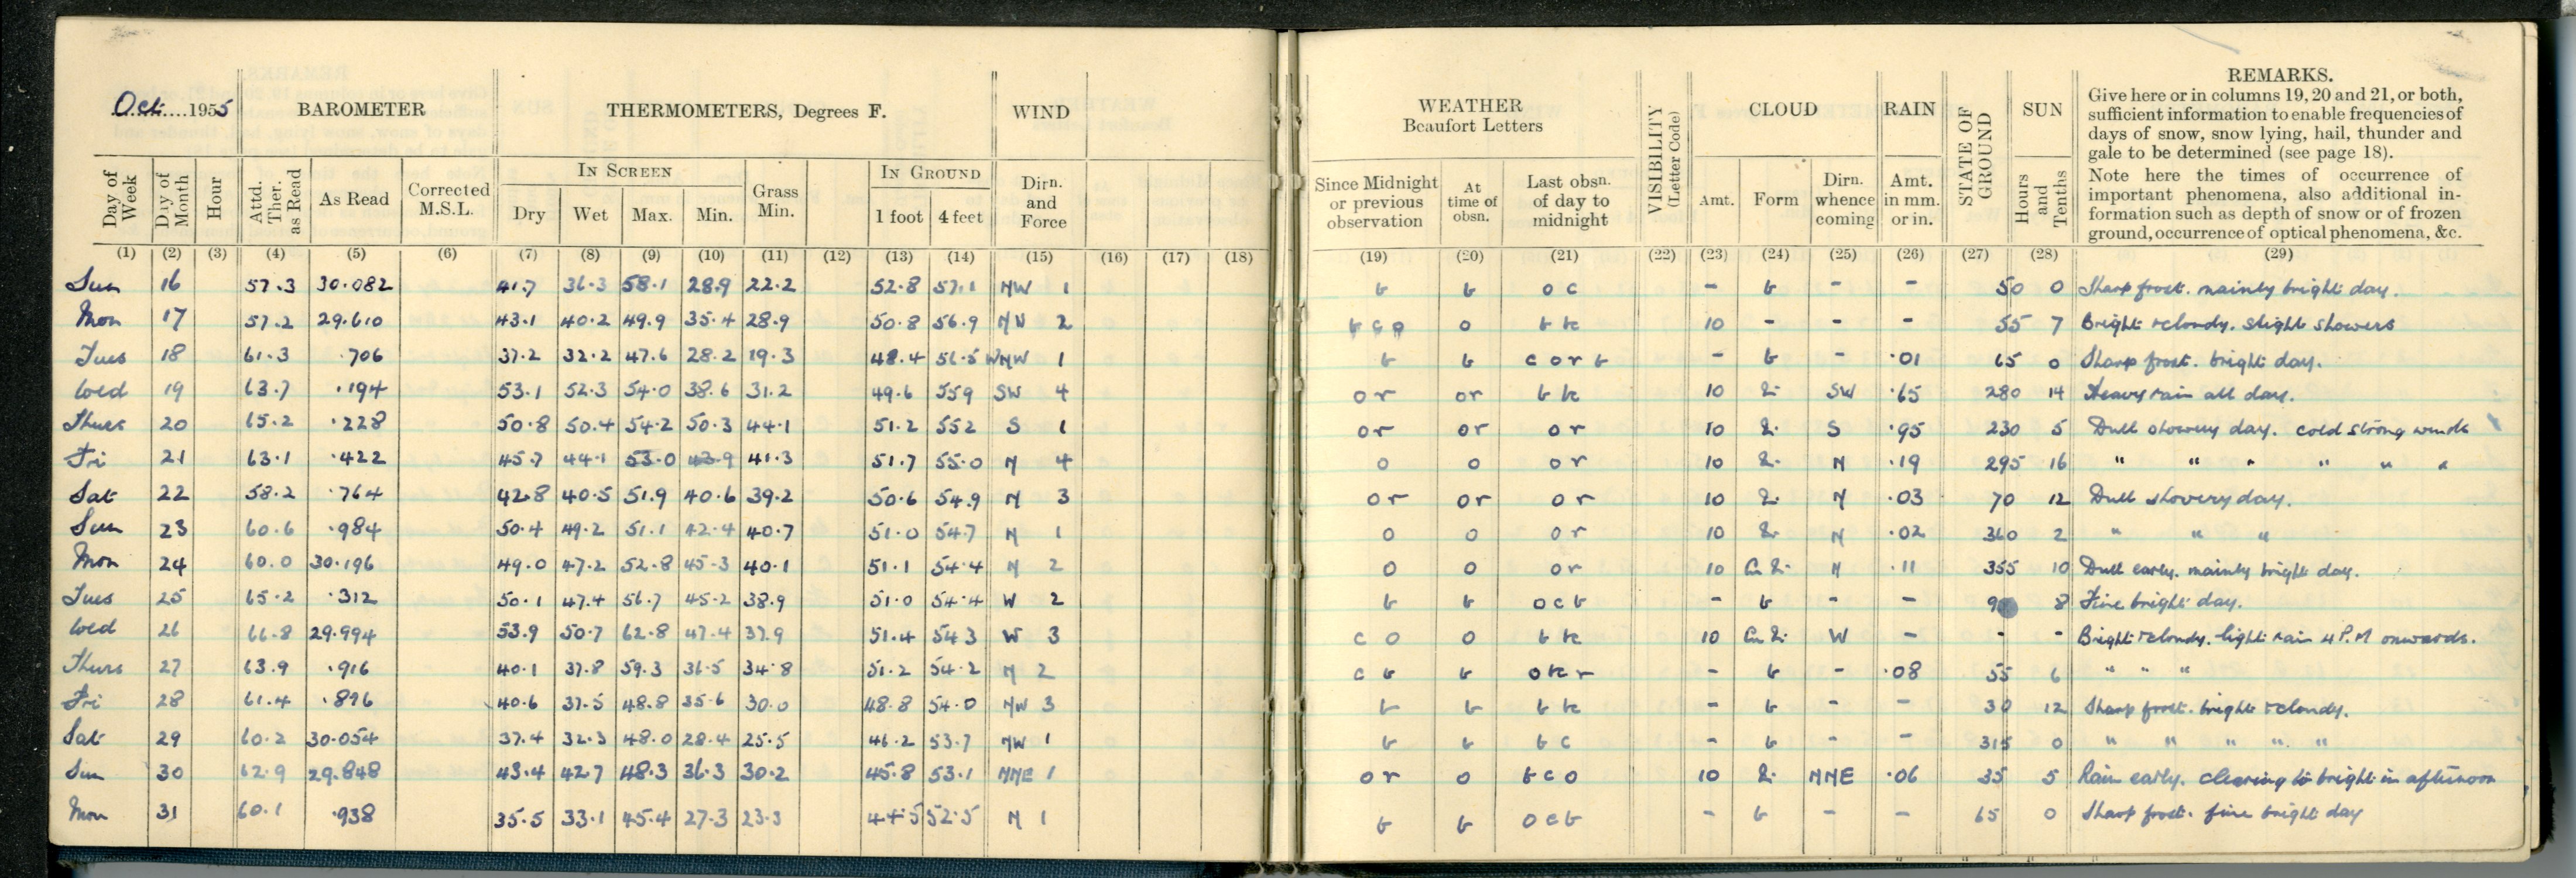 Oct. 1955 BAROMETER THERMOMETERS, Degrees F. WIND WEATHER Beaufort Letters VISIBILITY (Letter Code) CLOUD RAIN STATE OF GROUND SUN REMARKS.
Give here or in columns 19, 20 and 21, or both,
sufficient information to enable frequencies of
days of snow, snow lying, hail, thunder and
gale to be determined (see page 18).
Note here the times of occurrence of
important phenomena, also additional in-
formation such as depth of snow or of frozen
ground, occurrence of optical phenomena, &c.
IN SCREEN IN GROUND
Day of Week Day of Month Hour Attd. Ther. as Read As Read Corrected M.S.L. Dry Wet Max. Min. Grass Min. 1 foot 4 feet Dirn. and Force Since Midnight or previous observation At time of obsn. Last obsn. of day to midnight Amt. Form Dirn. whence coming Amt. in mm. or in. Hours and Tenths
(1) (2) (3) (4) (5) (6) (7) (8) (9) (10) (11) (12) (13) (14) (15) (16) (17) (18) (19) (20) (21) (22) (23) (24) (25) (26) (27) (28) (29)
Sun 16 57.3 30.082 41.7 36.3 58.1 28.9 22.2 52.8 57.1 NW 1 b b o c - b - - 50 0 Sharp frost. mainly bright day.
Mon 17 57.2 29.610 43.1 40.2 49.9 35.4 28.9 50.8 56.9 NW 2 b c o b bc 10 - - - 55 7 Bright & cloudy. slight showers
Tues 18 61.3 .706 37.2 32.2 47.6 28.2 19.3 48.4 56.5 WNW 1 b b c o r b - b - .01 65 0 Sharp frost. bright day.
Wed 19 63.7 .194 53.1 52.3 54.0 38.6 31.2 49.6 559 SW 4 or or b bc 10 SW .65 280 14 Heavy rain all day.
Thurs 20 65.2 .228 50.8 50.4 54.2 50.3 44.1 51.2 552 S 1 or or or 10 S .95 230 5 Dull showery day. cold strong winds
Fri 21 63.1 .422 45.7 44.1 53.0 43.9 41.3 51.7 55.0 N 4 o o or 10 N .19 295 16 " " " " " "
Sat 22 58.2 .764 42.8 40.5 51.9 40.6 39.2 50.6 54.9 N 3 or or or 10 N .03 70 12 Dull showery day.
Sun 23 60.6 .984 50.4 49.2 51.1 42.4 40.7 51.0 54.7 N 1 o o or 10 N .02 360 2 " " "
Mon 24 60.0 30.196 49.0 47.2 52.8 45.3 40.1 51.1 54.4 N 2 o o or 10 N .11 355 10 Dull early. mainly bright day.
Tues 25 65.2 .312 50.1 47.4 56.7 45.2 38.9 51.0 54.4 W 2 b b o c b - b - - 8 Fine bright day.
Wed 26 66.8 29.994 53.9 50.7 62.8 47.4 37.9 51.4 543 W 3 c o o b bc 10 W - - - Bright & cloudy. light rain 4 P.M onwards.
Thurs 27 63.9 .916 40.1 37.8 59.3 36.5 34.8 51.2 54.2 N 2 c b b o bc r - b - .08 55 6 " " "
Fri 28 61.4 .896 40.6 37.5 48.8 35.6 30.0 48.8 54.0 NW 3 b b b bc - b - - 30 12 Sharp frost. bright & cloudy.
Sat 29 60.2 30.054 37.4 32.3 48.0 28.4 25.5 46.2 53.7 NW 1 b b b c - b - - 315 0 " " " " "
Sun 30 62.9 29.848 43.4 42.7 48.3 36.3 30.2 45.8 53.1 NNE 1 or o b c o 10 NNE .06 35 5 Rain early. clearing to bright in afternoon
Mon 31 60.1 .938 35.5 33.1 45.4 27.3 23.3 44.5 52.5 N 1 b b o c b - b - - 65 0 Sharp frost. fine bright day